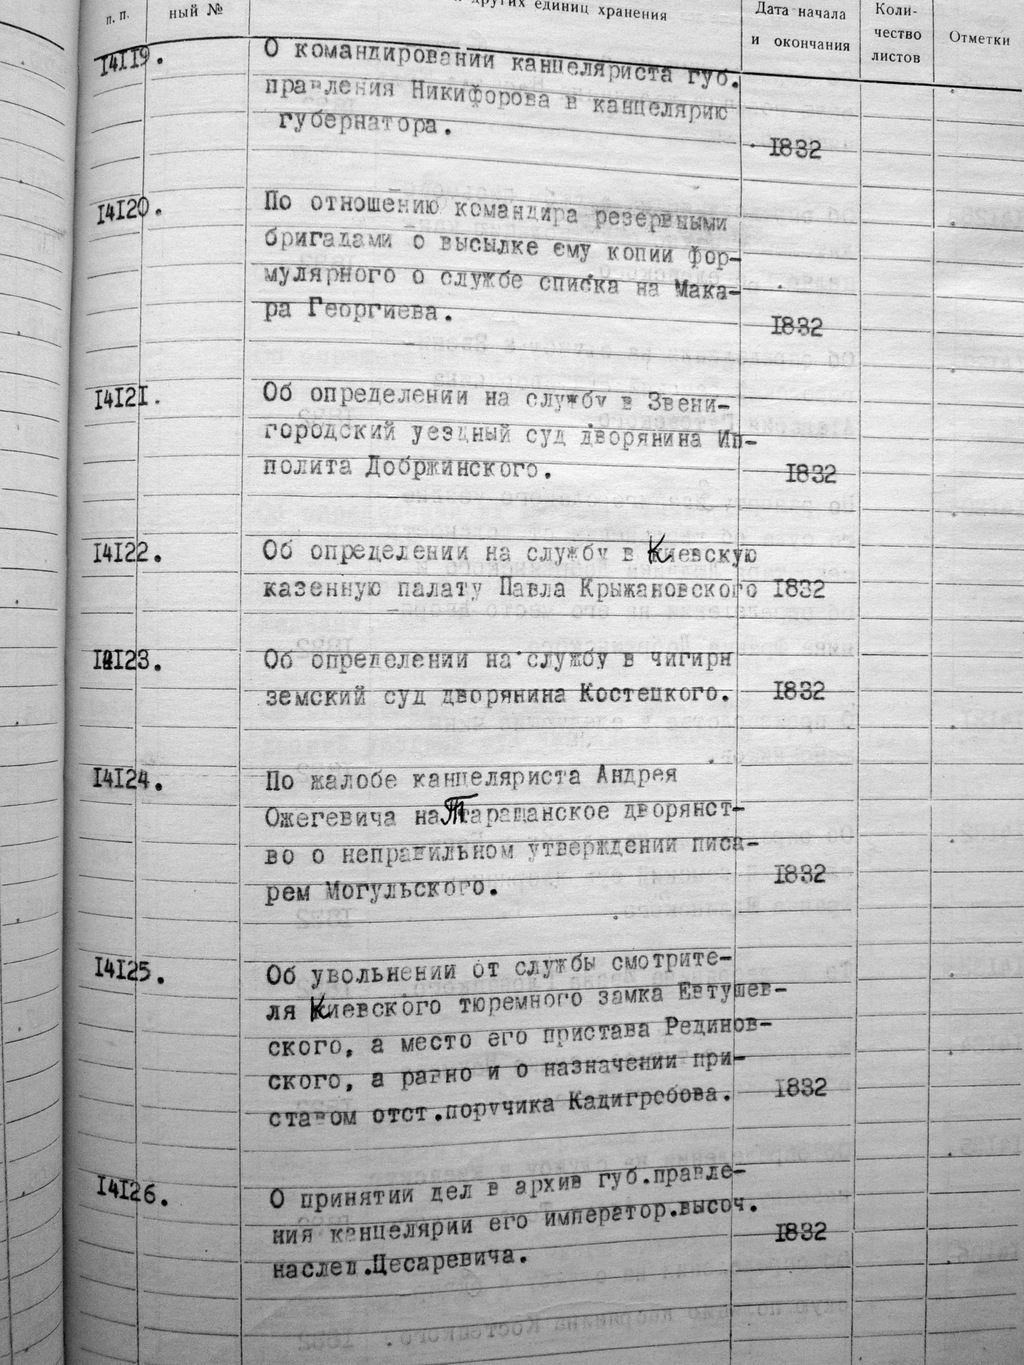 п. п.
ный №
других единиц хранения
Дата начала
и окончания
Коли-
чество
листов
Отметки
14119.
О командировании канцеляриста губ.
правления Никифорова в канцелярию
губернатора.
1832
14120.
По отношению командира резервными
бригадами о высылке ему копии фор-
мулярного о службе списка на Мака-
ра Георгиева.
1832
14121.
Об определении на службу в Звени-
городский уездный суд дворянина Ип-
полита Добржинского.
1832
14122.
Об определении на службу в Киевскую
казенную палату Павла Крыжановского
1832
14123.
Об определении на службу в чигирн
земский суд дворянина Костецкого.
1832
14124.
По жалобе канцеляриста Андрея
Ожегевича на Таращанское дворянст-
во о неправильном утверждении писа-
рем Могульского.
1832
14125.
Об увольнении от службы смотрите-
ля Киевского тюремного замка Евтушев-
ского, а место его пристава Рединов-
ского, а равно и о назначении при-
ставом отст.поручика Кадигребова.
1832
14126.
О принятии дел в архив губ.правле-
ния канцелярии его император.высоч.
наслед.Цесаревича.
1832